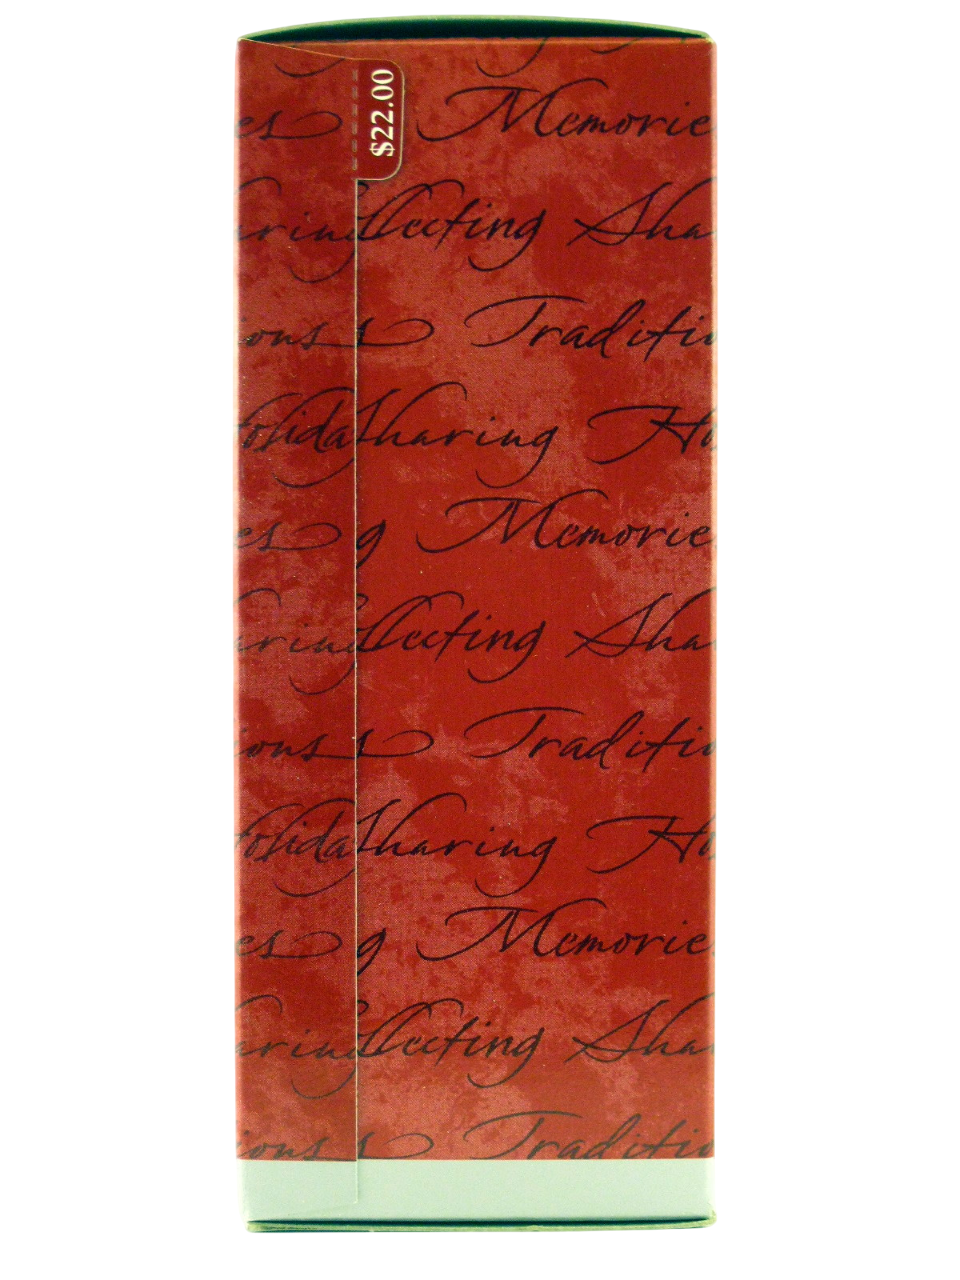 $22.00
es Memorie
aring llecting Sha
ions s Traditio
Holida Sharing Ho
es g Memorie
aring llecting Sha
ions s Traditio
Holida Sharing Ho
es g Memorie
aring llecting Sha
ions s Traditio